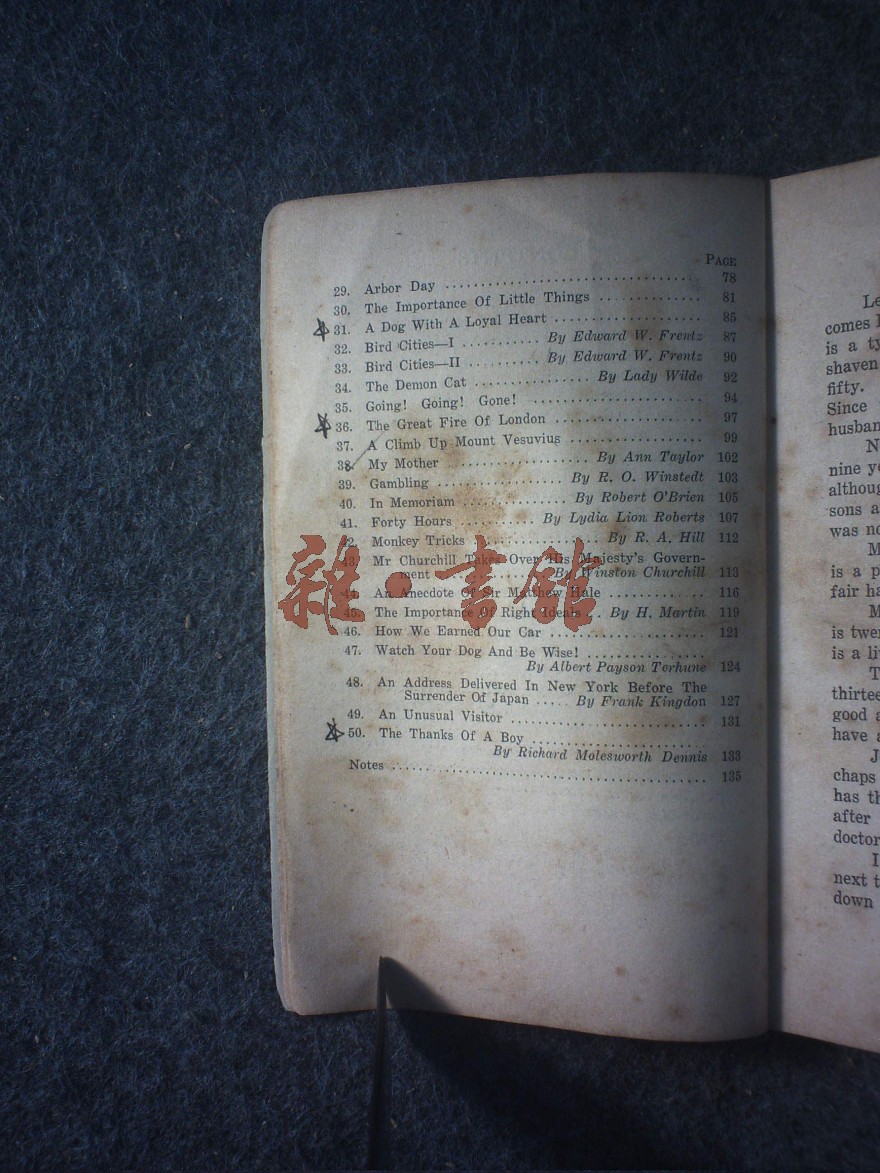 PAGE
29. Arbor Day .............................. 78
30. The Importance Of Little Things ............. 81
31. A Dog With A Loyal Heart .................. 85
32. Bird Cities—I .......... By Edward W. Frentz 87
33. Bird Cities—II ......... By Edward W. Frentz 90
34. The Demon Cat ............... By Lady Wilde 92
35. Going! Going! Gone! ..................... 94
36. The Great Fire Of London .................. 97
37. A Climb Up Mount Vesuvius ................ 99
38. My Mother .................. By Ann Taylor 102
39. Gambling ................ By R. O. Winstedt 103
40. In Memoriam ............. By Robert O'Brien 105
41. Forty Hours .......... By Lydia Lion Roberts 107
42. Monkey Tricks ................ By R. A. Hill 112
43. Mr Churchill Takes Over His Majesty's Govern-
ment .............. By Winston Churchill 113
44. An Anecdote Of Sir Matthew Hale ............ 116
45. The Importance Of Right Ideals .. By H. Martin 119
46. How We Earned Our Car ................... 121
47. Watch Your Dog And Be Wise! ..............
By Albert Payson Terhune 124
48. An Address Delivered In New York Before The
Surrender Of Japan ..... By Frank Kingdon 127
49. An Unusual Visitor ........................ 131
50. The Thanks Of A Boy .....................
By Richard Molesworth Dennis 133
Notes ...................................... 135
雜·書館
Le
comes
is a ty
shaven
fifty.
Since
husban
N
nine ye
althoug
sons a
was no
M
is a p
fair ha
M
is twer
is a li
T
thirtee
good a
have a
J
chaps
has th
after
doctor
I
next t
down